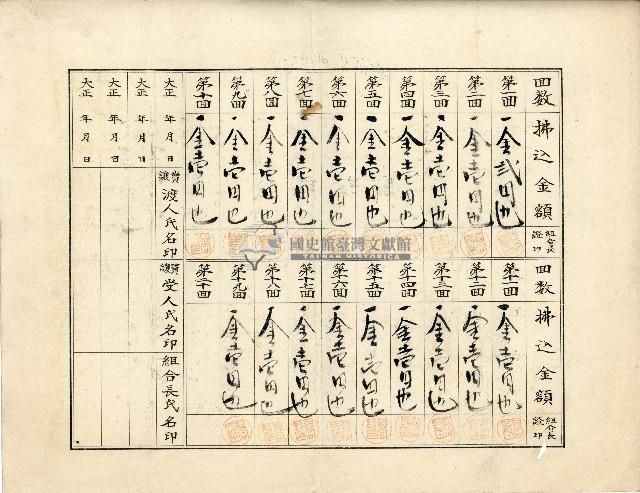 回数 拂込金額 組合長證印
第一回 一金弐円也
第二回 一金壱円也
第三回 一金壱円也
第四回 一金壱円也
第五回 一金壱円也
第六回 一金壱円也
第七回 一金壱円也
第八回 一金壱円也
第九回 一金壱円也
第十回 一金壱円也
回数 拂込金額 組合長證印
第十一回 一金壱円也
第十二回 一金壱円也
第十三回 一金壱円也
第十四回 一金壱円也
第十五回 一金壱円也
第十六回 一金壱円也
第十七回 一金壱円也
第十八回 一金壱円也
第十九回 一金壱円也
第二十回
大正 年 月 日 賣讓渡人氏名印 買讓受人氏名印 組合長氏名印
大正 年 月 日
大正 年 月 日
大正 年 月 日
國史館臺灣文獻館
TAIWAN HISTORICA